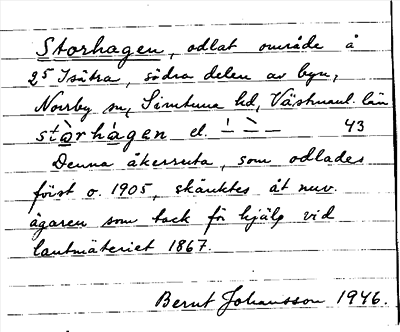 Storhagen, odlat område å
2⁵ Isätra, södra delen av byn,
Norrby sn, Simtuna hd, Västmanl. län
stòrhàgen el. –́ –̀ – 43
Denna åkerruta, som odlades
först o. 1905, skänktes åt nuv.
ägaren som tack för hjälp vid
lantmäteriet 1867.
Bernt Johansson 1946.